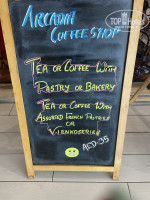 ARCADIA
COFFEE SHOP
TEA OR COFFEE WITH
PASTRY OR BAKERY
TEA OR COFFEE WITH
ASSORTED FRENCH PASTRIES
OR
VIENNOSERIES
AED-35
TOP HOTELS